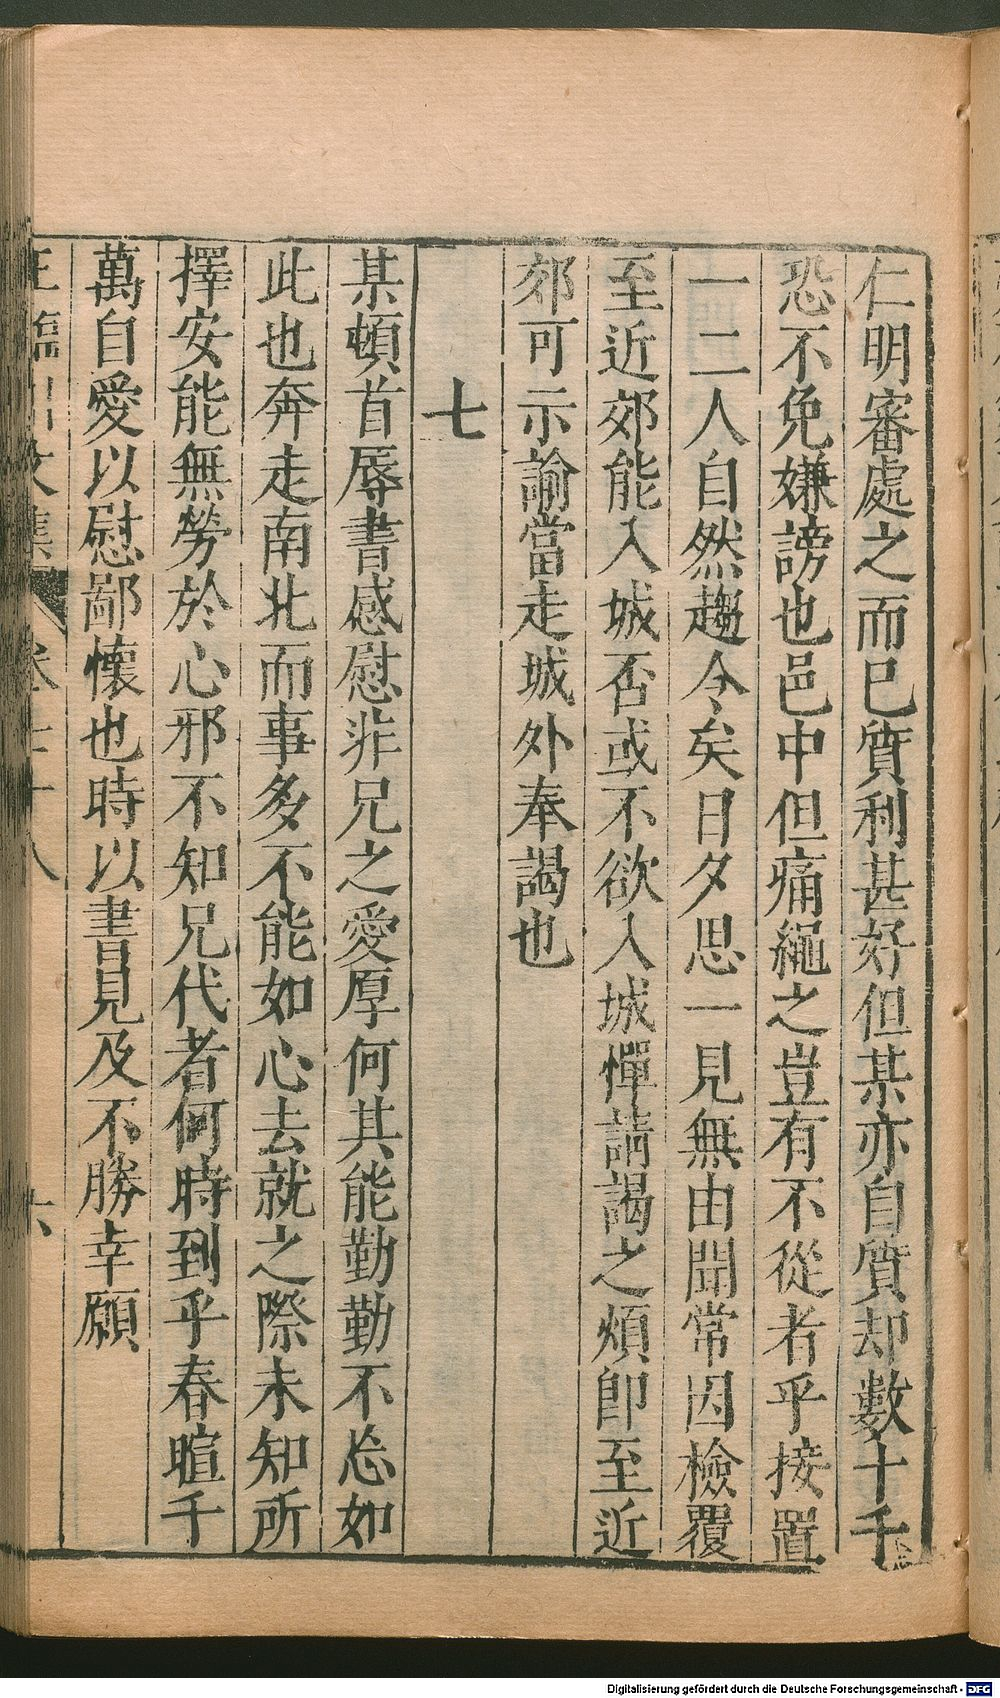 仁明審處之而已質利甚好但某亦自質却數十千
恐不免嫌謗也邑中但痛繩之豈有不從者乎接置
一二人自然趨令矣日夕思一見無由聞常因檢覆
至近郊能入城否或不欲入城憚請謁之煩即至近
郊可示諭當走城外奉謁也
七
某頓首辱書感慰非兄之愛厚何其能勤勤不忘如
此也奔走南北而事多不能如心去就之際未知所
擇安能無勞於心邪不知兄代者何時到乎春暄千
萬自愛以慰鄙懷也時以書見及不勝幸願
王臨川文集 卷七十八 六
Digitalisierung gefördert durch die Deutsche Forschungsgemeinschaft - DFG